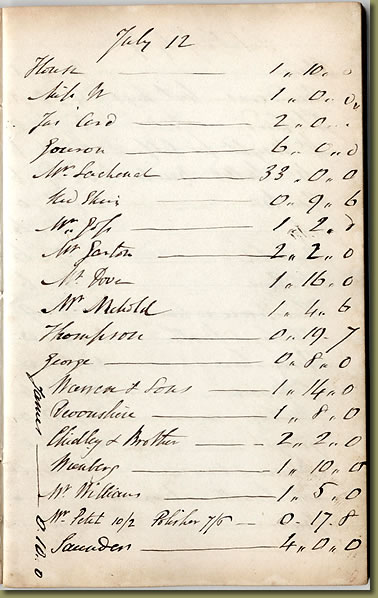 July 12
House 1 " 10 " 0
Miss W 1 " 0 " 0
Jas Card 2 " 0 "
6 " 0 " 0
Mr 33 " 0 " 0
0 " 9 " 6
Mr Goss 1 " 2 " 0
Mr Garton 2 " 2 " 0
Mr Dove 1 " 16 " 0
Mr 1 " 4 " 6
Thompson 0 " 19 - 7
George 0 " 8 " 0
Warren & Sons 1 " 14 " 0
Devonshire 1 " 8 " 0
Chidley & Brother 2 " 2 " 0
Wienberg 1 " 10 " 0
Mr Williams 1 " 5 " 0
Mr Petit 10/2 Polisher 7/6 0 - 17 " 8
Saunders 4 " 0 " 0
James 0 " 10 " 0